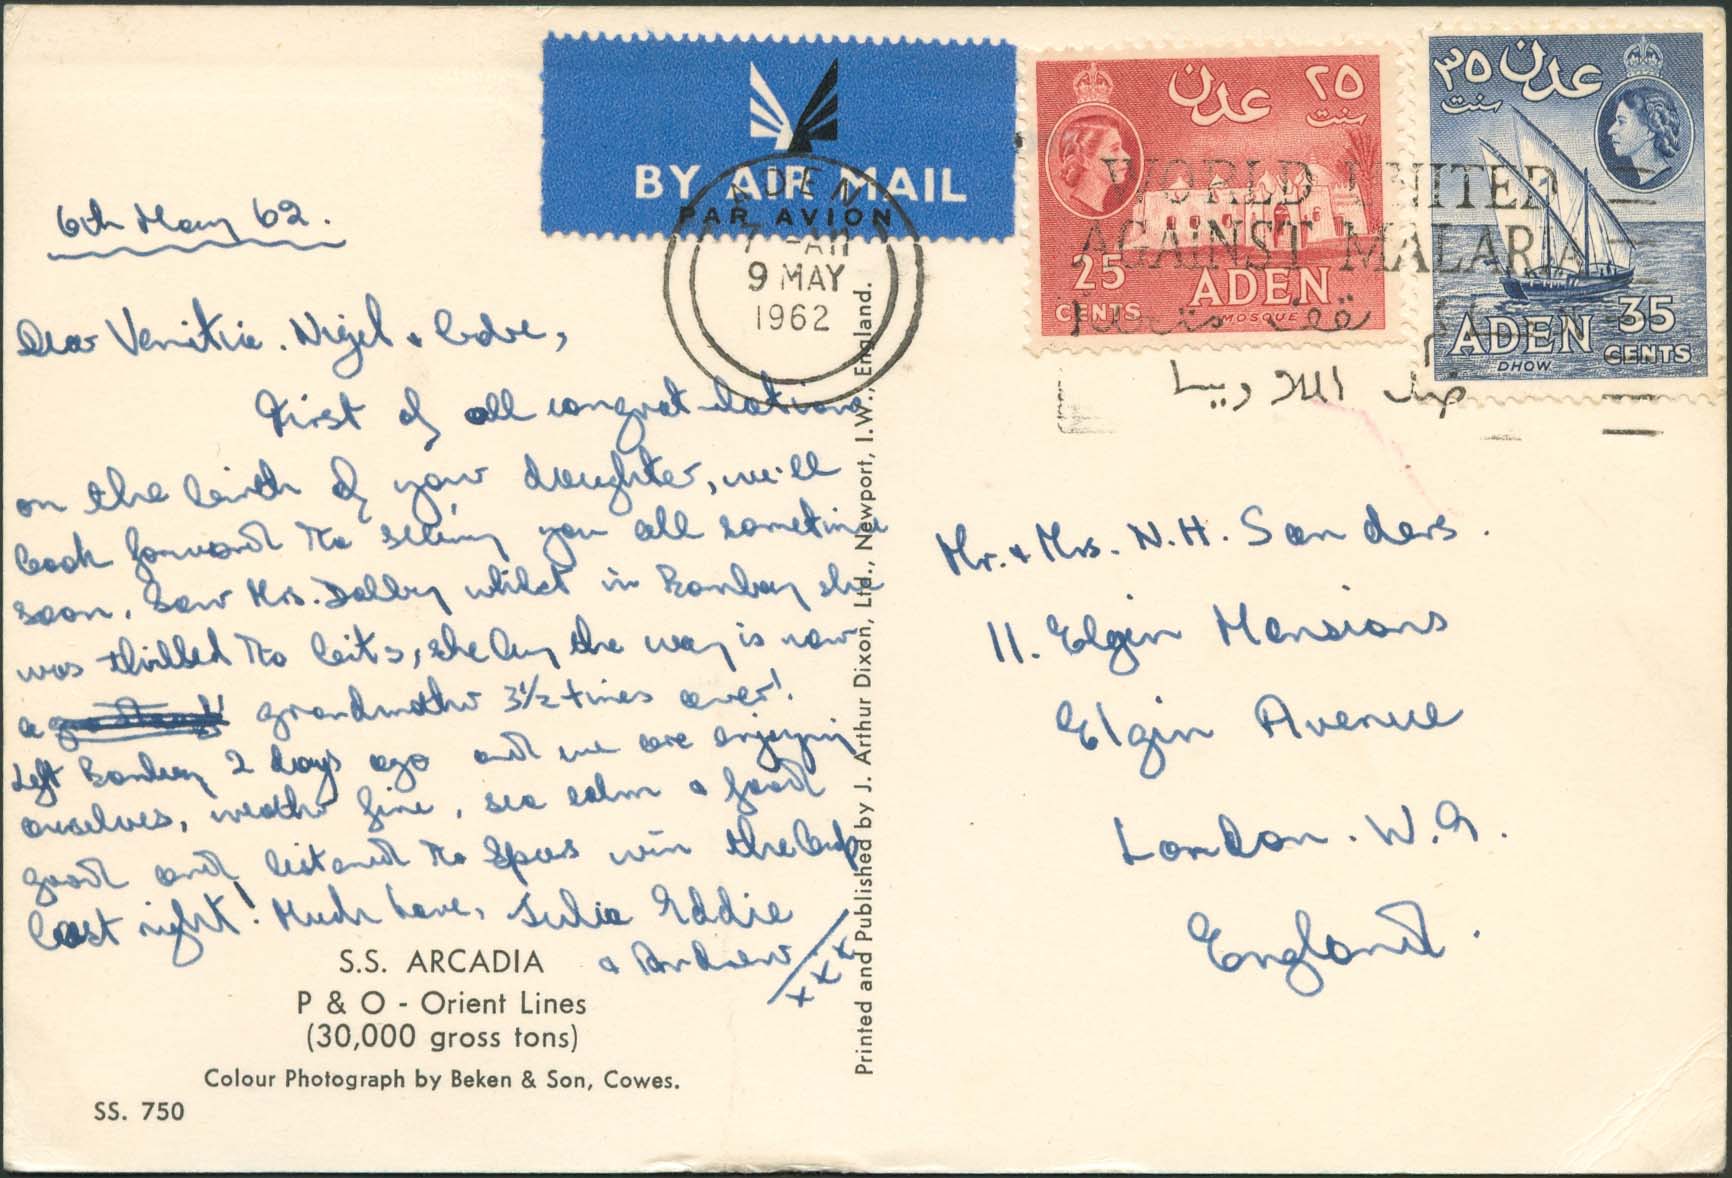 6th May 62.
Dear Venitia. Nigel &
First of all congratulations
on the birth of your daughter, we'll
look forward to seeing you all sometime
soon. Saw Mrs. Dalby whilst in Bombay she
was thrilled to bits, she by the way is now
a grandmother 3½ times over!
Left Bombay 2 days ago and we are enjoying
ourselves, weather fine, sea calm & food
good and listened to Spurs win the Cup
last night! Much love, Julia Eddie
& Andrew
x x x
S.S. ARCADIA
P & O - Orient Lines
(30,000 gross tons)
Colour Photograph by Beken & Son, Cowes.
SS. 750
Printed and Published by J. Arthur Dixon, Ltd., Newport, I.W., England.
BY AIR MAIL
PAR AVION
ADEN
7 - AM
9 MAY
1962
عدن ٢٥
سنت
25
CENTS
ADEN
MOSQUE
٣٥ عدن
سنت
ADEN
DHOW
35
CENTS
WORLD UNITED
AGAINST MALARIA
ضد الملاريا
Mr. & Mrs. N.H. Sanders.
11. Elgin Mansions
Elgin Avenue
London. W.9.
England.